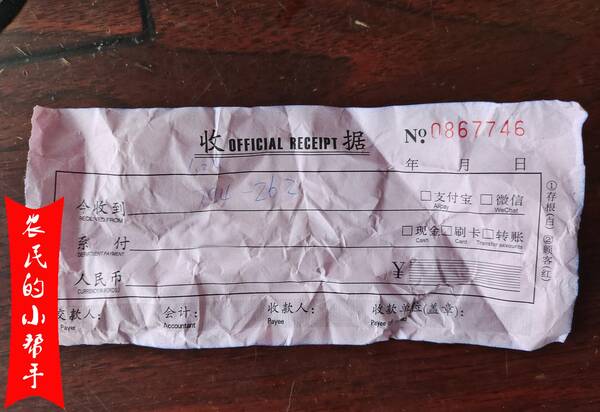 收 OFFICIAL RECEIPT 据
No. 0867746
年 月 日
今收到
RECEIVED FROM
□支付宝 □微信
Alipay WeChat
系 付
□现金 □刷卡 □转账
Cash Card Transfer accounts
人民币
¥
交款人: 会计: 收款人: 收款单位(盖章):
Payer Accountant Payee
①存根(白) ②顾客(红)
农民的小帮手